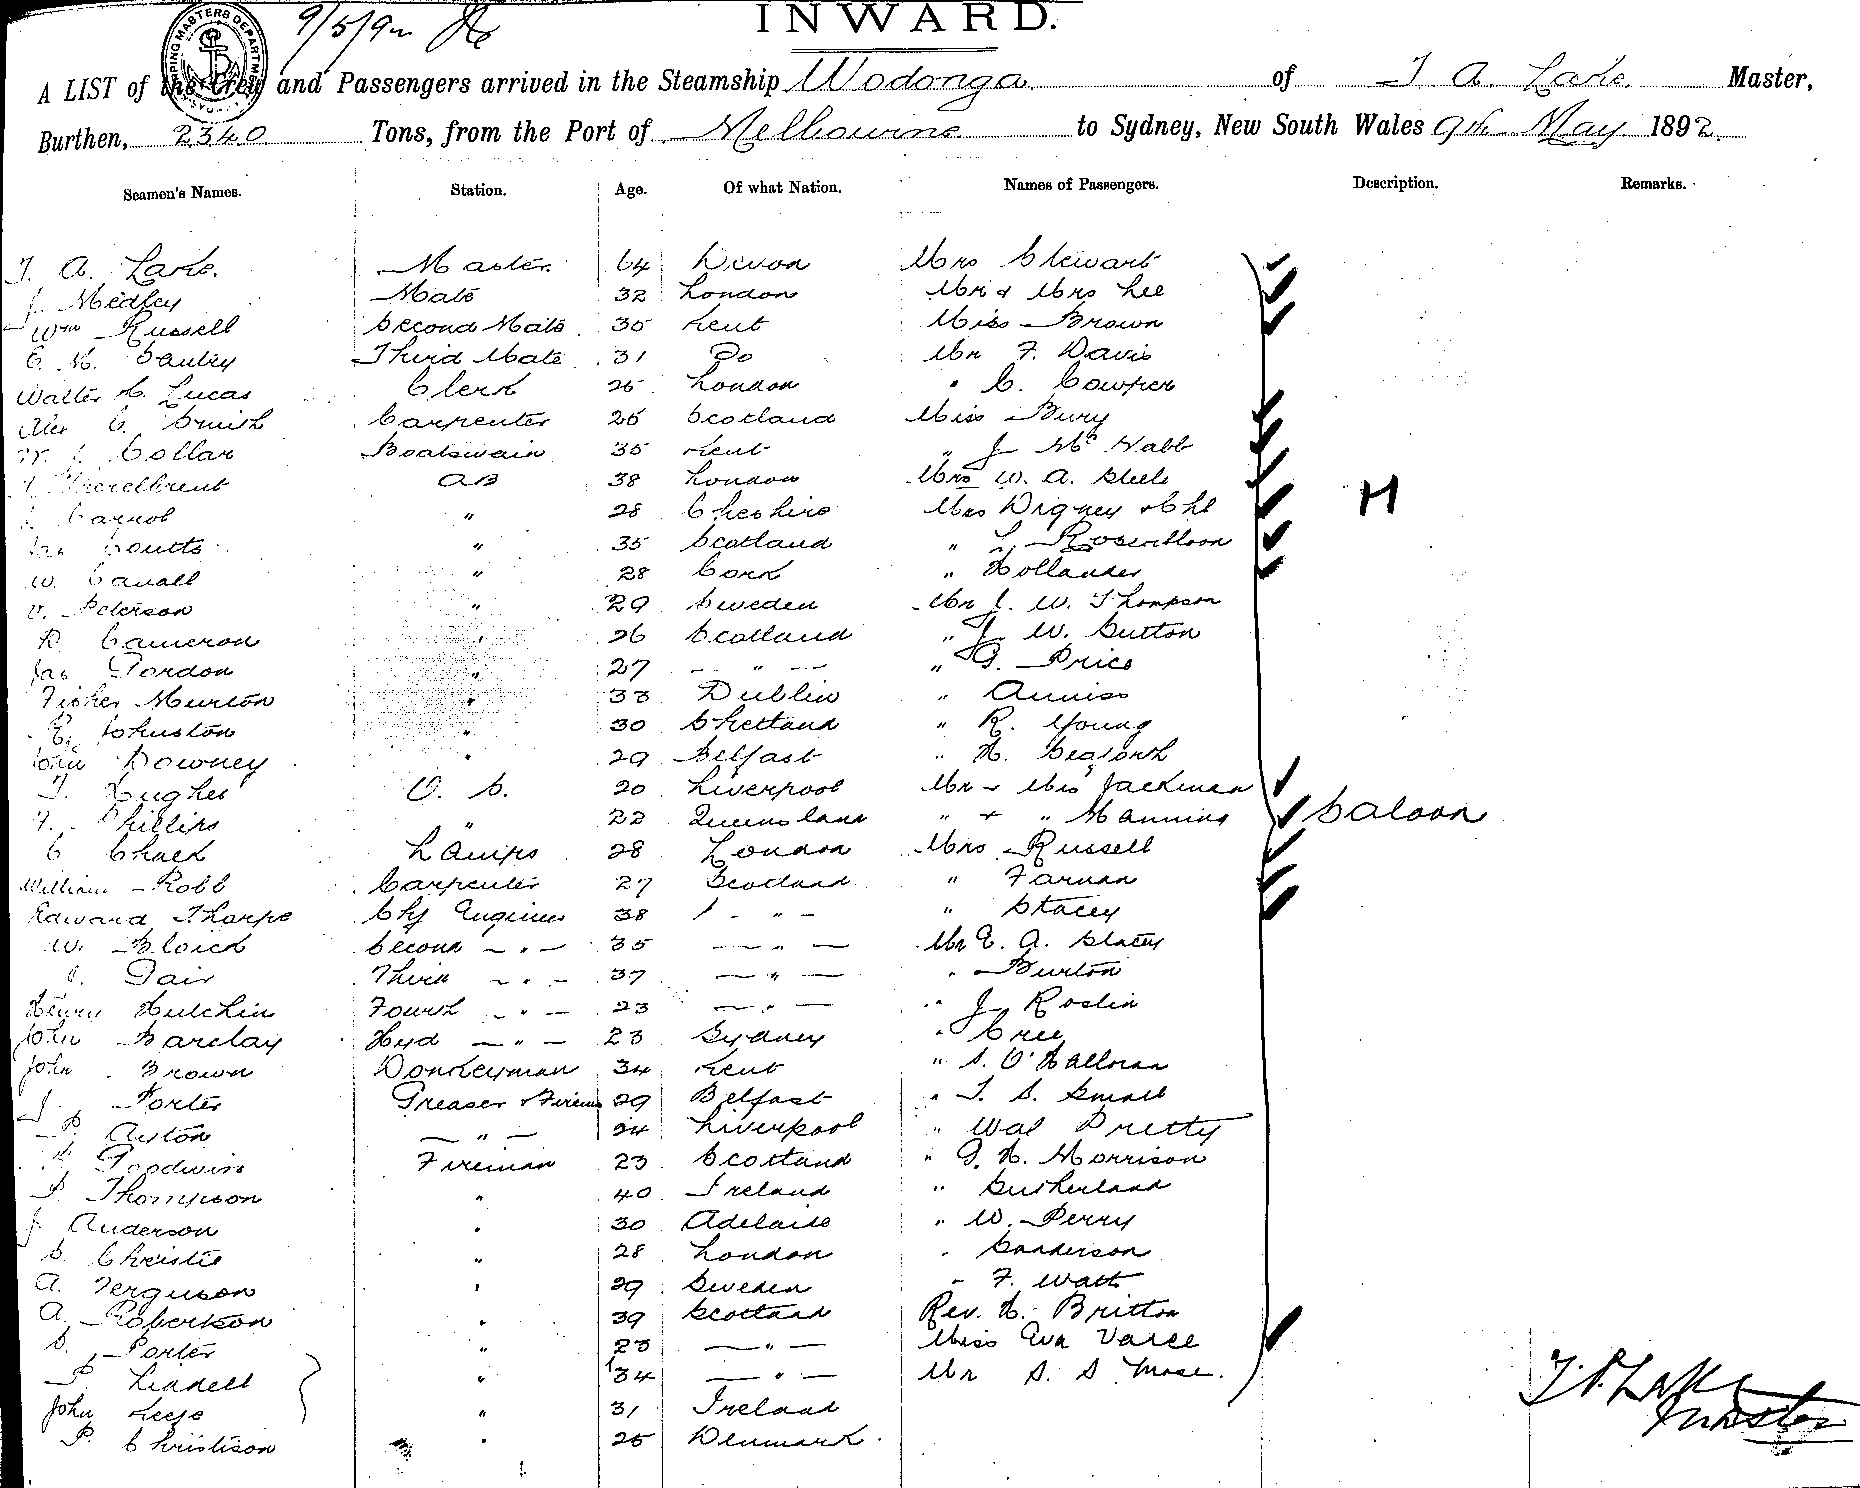 9/5/92
INWARD.
A LIST of the Crew and Passengers arrived in the Steamship Wodonga of T. A. Lake Master,
Burthen, 2340 Tons, from the Port of Melbourne to Sydney, New South Wales 9th May 1892.
Seamen's Names. Station. Age. Of what Nation. Names of Passengers. Description. Remarks.
T. A. Lake. Master 64 Devon Mrs Stewart
J. Medley Mate 32 London Mr & Mrs Lee
Wm Russell Second Mate 35 Kent Miss Brown
Third Mate 31 Do Mr F. Davis
Walter Lucas Clerk 25 London " C. Cowper
Alex C. Smith Carpenter 25 Scotland Miss Bury
Collar Boatswain 35 Kent " J McNabb
AB 38 London Mrs W. A. Steele
" 28 Cheshire Mrs Digney & Chd H
Jas Coutts " 35 Scotland "
W. " 28 Cork " Hollander
Peterson " 29 Sweden Mr J. W. Thompson
R Cameron " 26 Scotland " J. W. Sutton
Jas Gordon " 27 " " G. Price
Fisher Murton " 33 Dublin " Anniss
Johnston " 30 Shetland " R. Young
John Downey " 29 Belfast " H. Seaforth
T. Hughes O. S. 20 Liverpool Mr & Mrs Jackman
Phillips " 22 Queensland " + " Manning Saloon
C Chack Lamps 28 London Mrs Russell
William Robb Carpenter 27 Scotland " Farnan
Edward Thorpe Chf Engineer 38 " " Stacey
W. Second " 35 " Mr E. A. Stacey
Fair Third " 37 " " Burton
Henry Hutchin Fourth " 23 " " J Roslin
John Barclay Hyd " 23 Sydney " Cree
John Brown Donkeyman 34 Kent " S. O'Halloran
J. Porter Greaser & Firem 29 Belfast " T. S. Small
P. Aston " 24 Liverpool " Wal Pretty
Goodwin Fireman 23 Scotland " G. H. Morrison
P. Thompson " 40 Ireland " Sutherland
J. Anderson " 30 Adelaide " W. Perry
S. Christie " 28 London " Sanderson
A. Ferguson " 29 Sweden " F. Watt
A. Robertson " 39 Scotland Rev. H. Britton
S. Porter " 23 " Miss Eva Varee
P. Liddell " 34 " Mr S. S. Mose.
John Leese " 31 Ireland
P. Christison " 25 Denmark.
T. A. Lake
Master